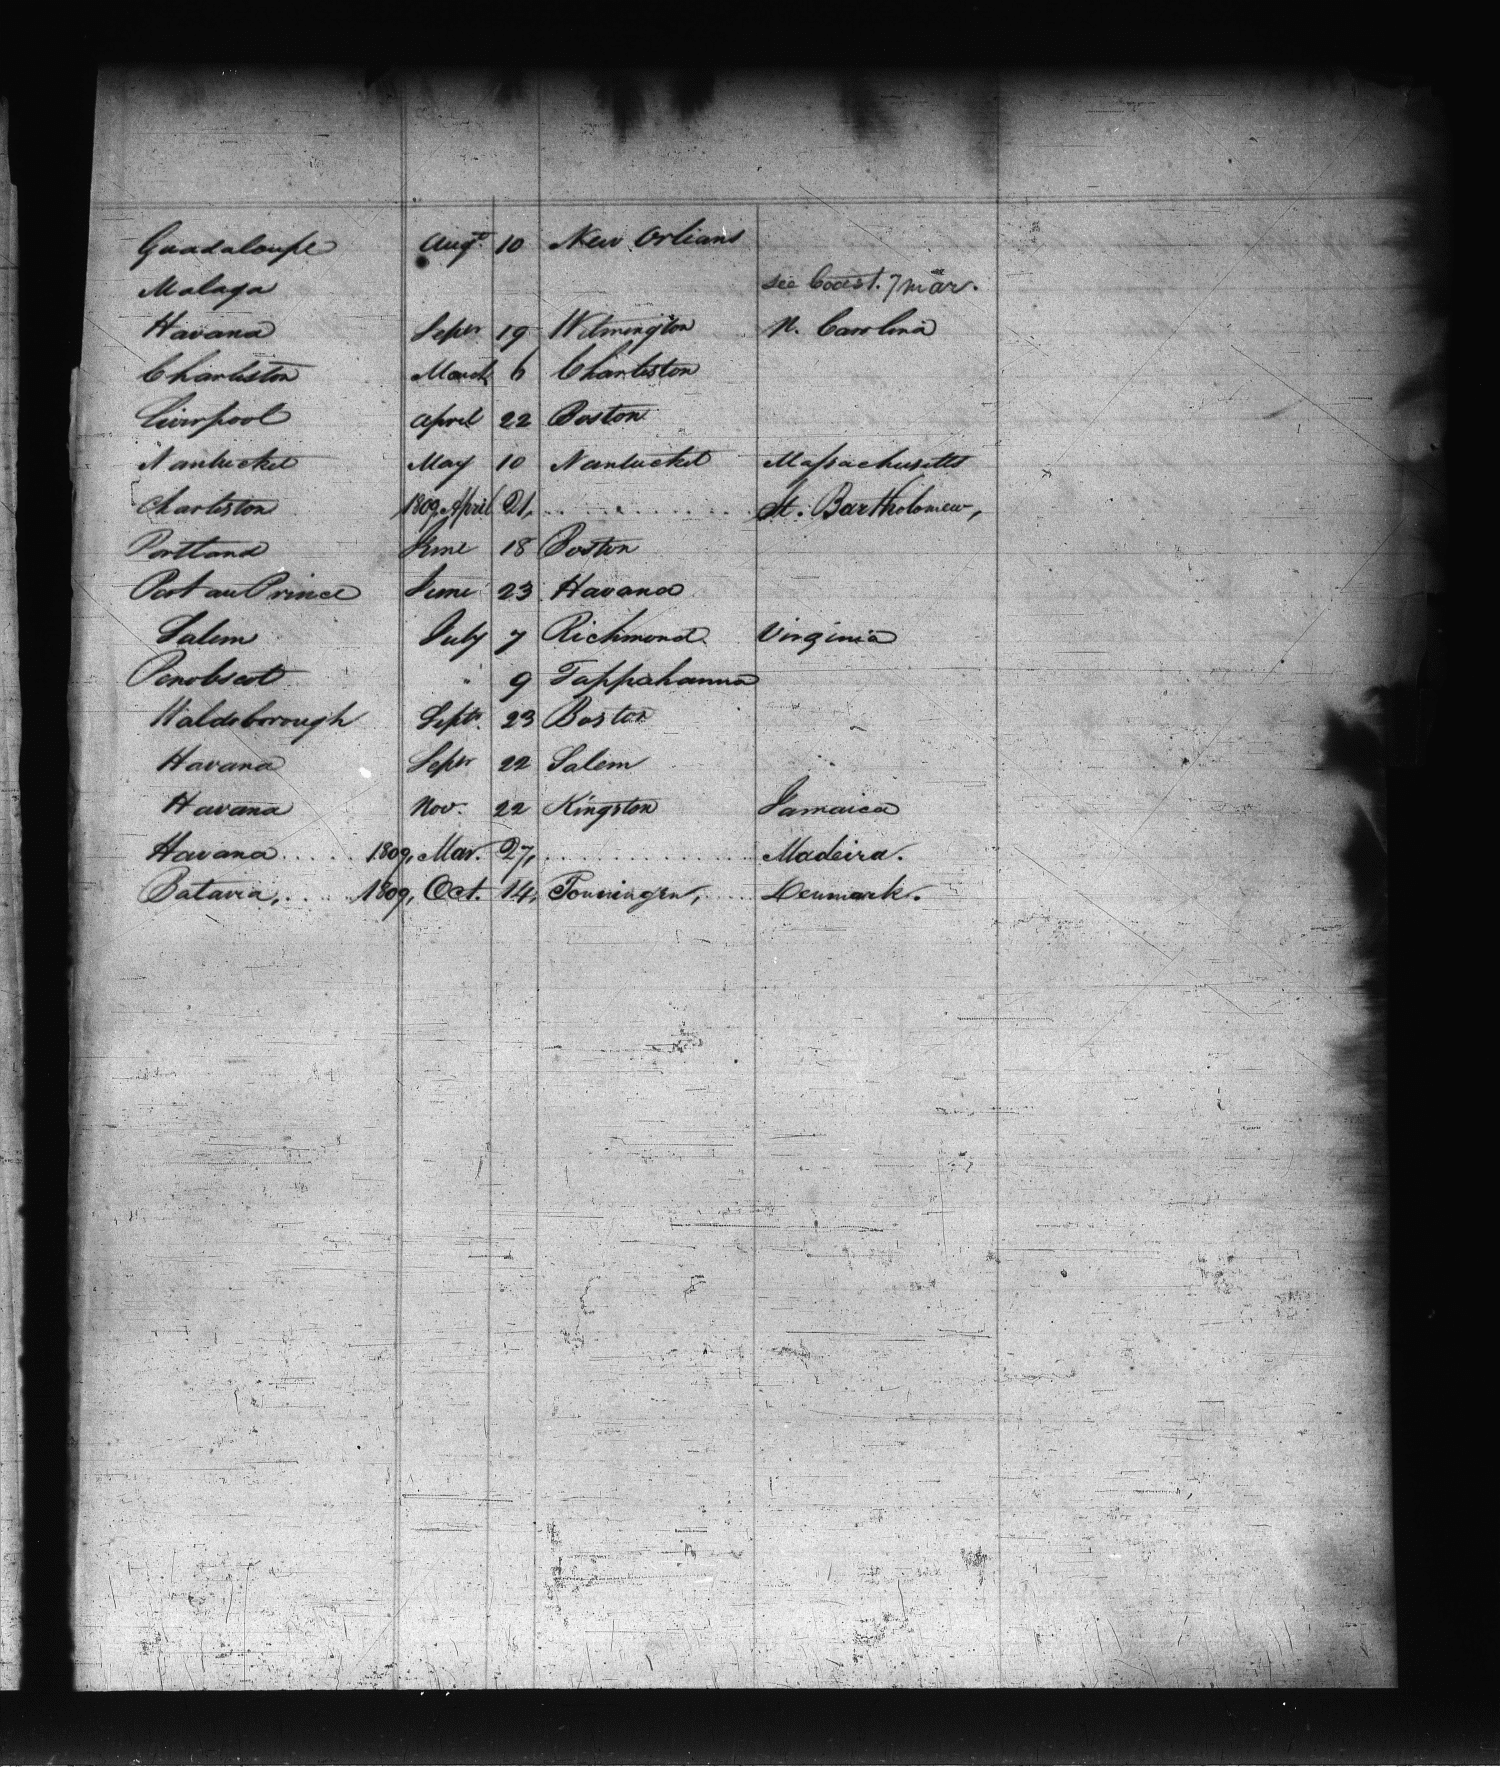 Guadaloupe Augt 10 New Orlians
Malaga see Coast. 7 mar.
Havana Sepr 19 Wilmington N. Carolina
Charliston March 6 Charliston
Liverpool April 22 Boston
Nantucket May 10 Nantucket Massachusetts
Charliston 1809, April 21, . . . . . . . St. Bartholomew,
Portland June 18 Boston
Port au Prince June 23 Havana
Salem July 7 Richmond Virginia
Penobscot " 9 Tappahanna
Waldoborough Septr. 23 Boston
Havana Sepr 22 Salem
Havana Nov. 22 Kingston Jamaica
Havana . . . . . 1809, Mar. 27, . . . . . . . . . . . . Madeira.
Batavia, . . . . . 1809, Oct. 14, Tonningen, . . . . Denmark.